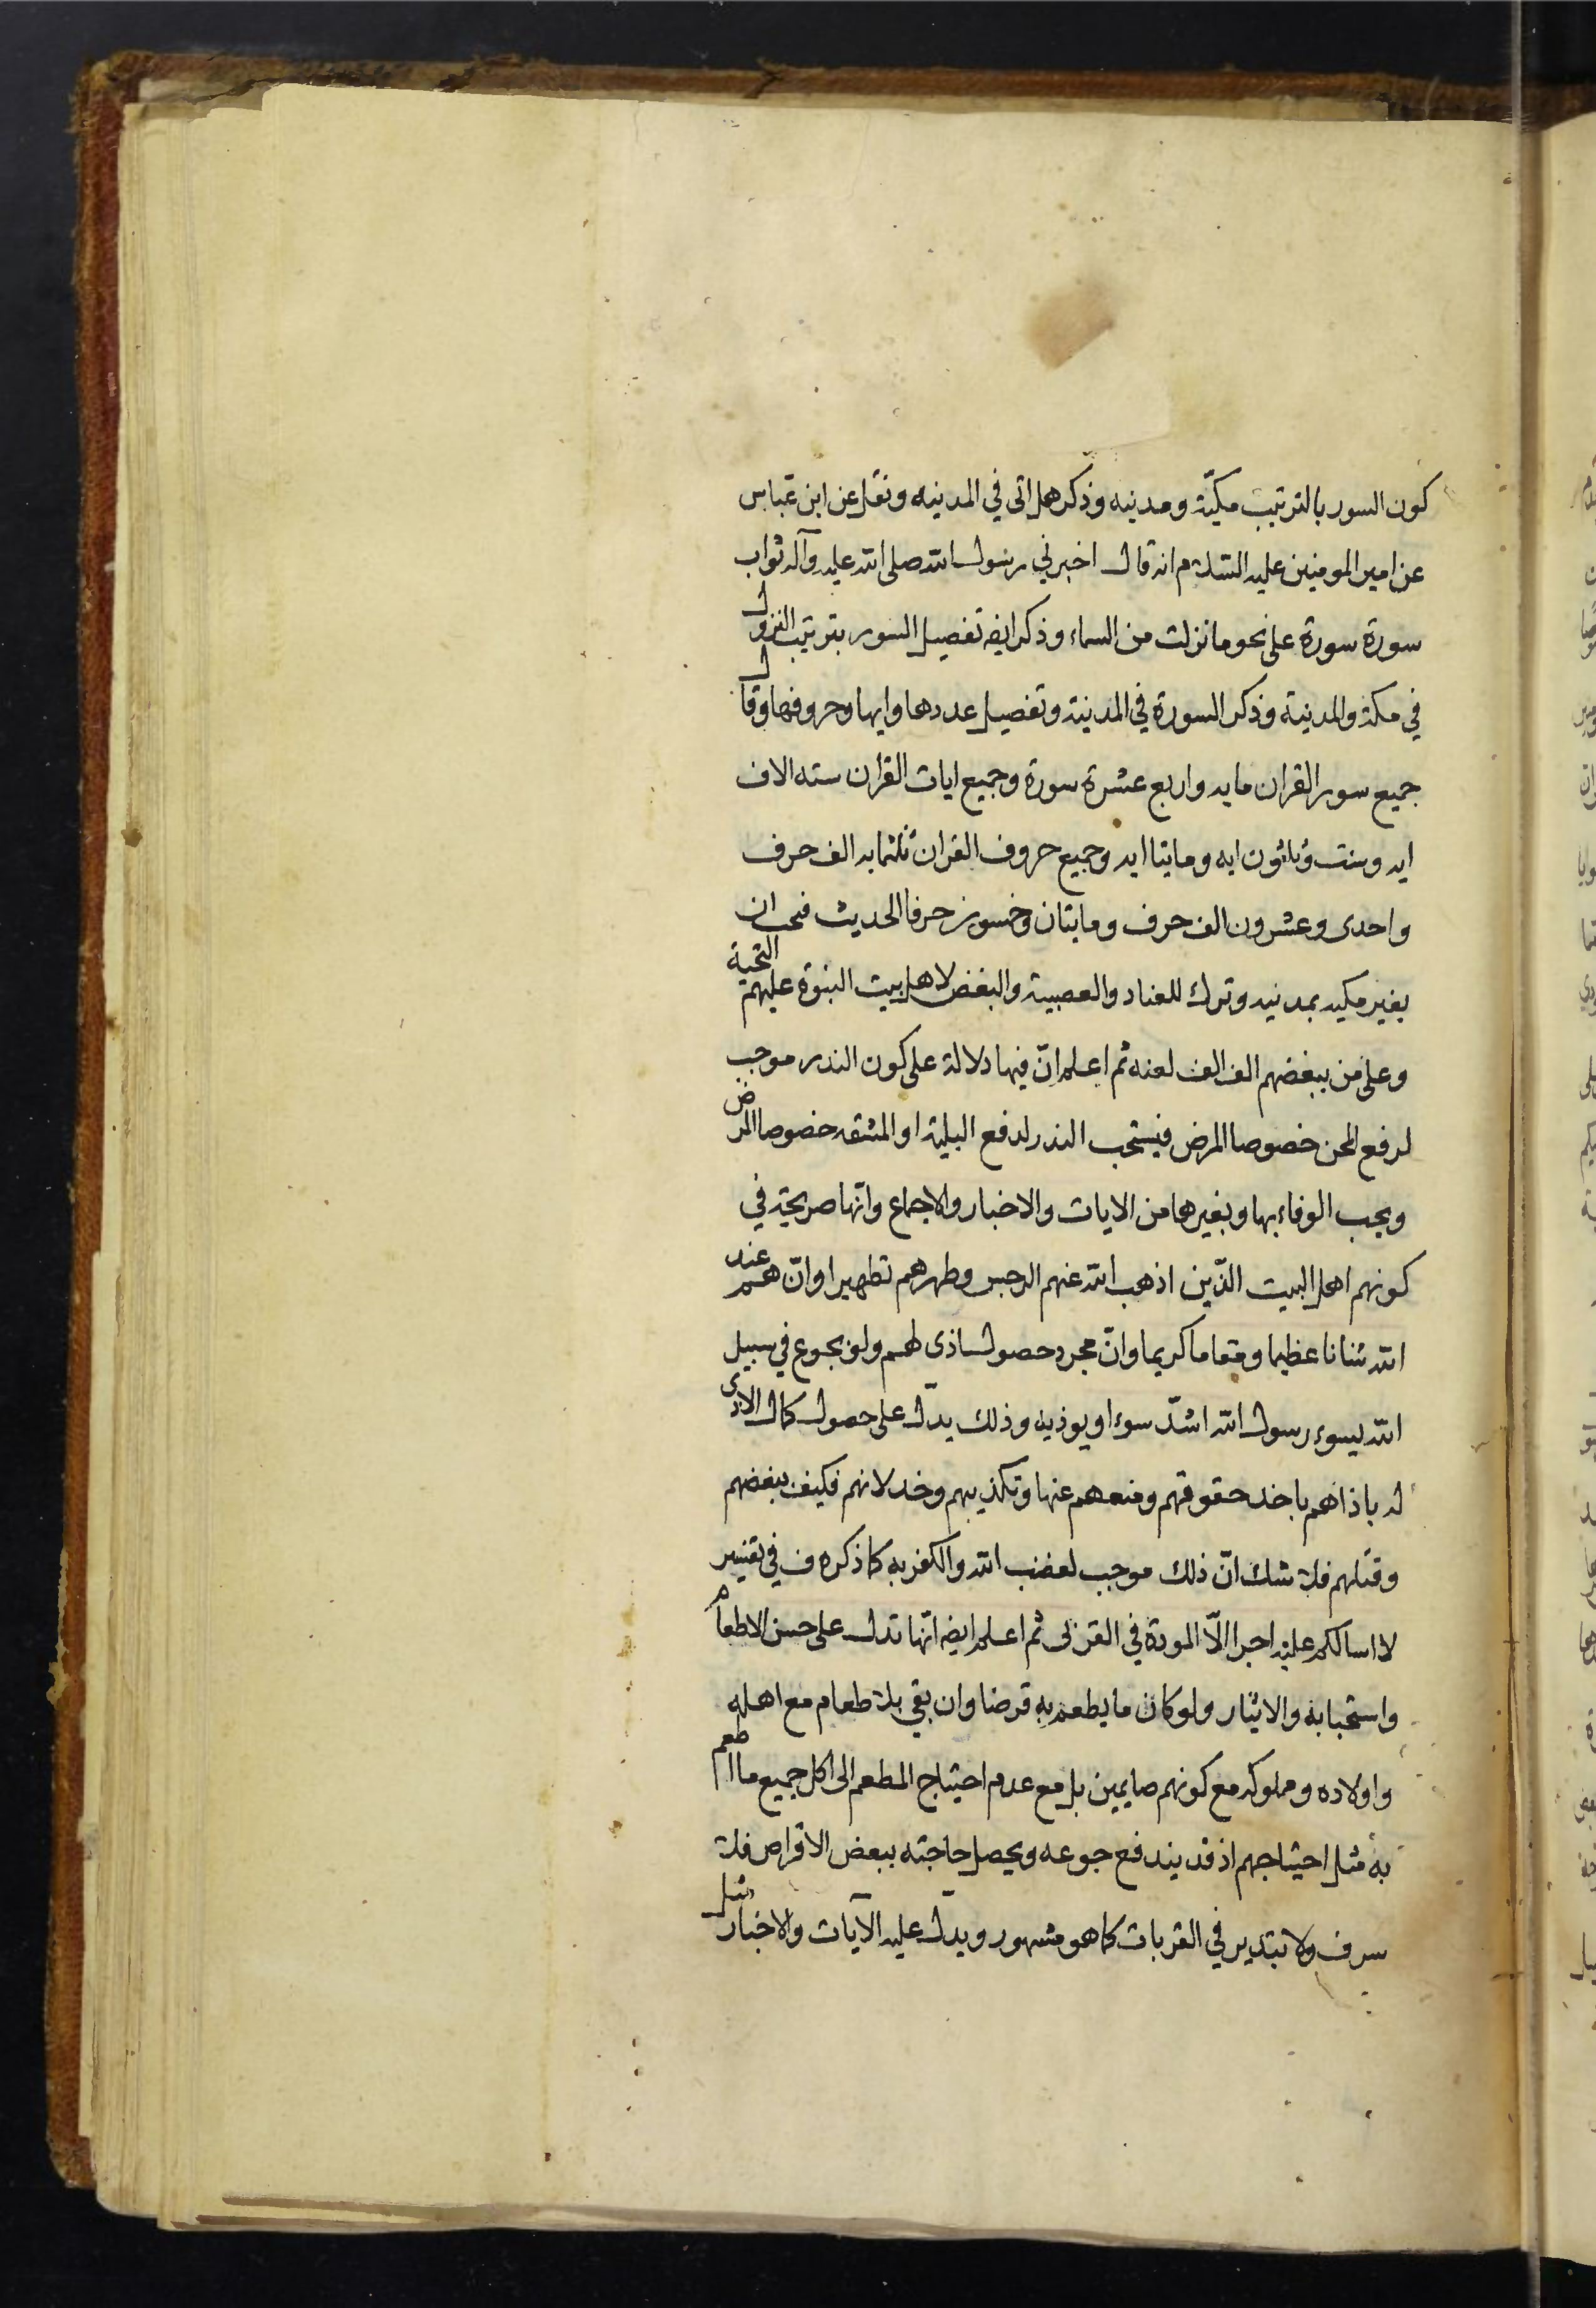 كون السور بالترتيب مكيّة ومدنيه وذكر هل اتى في المدينه ونقل عن ابن عباس
عن امير المومنين عليه السّلام انه قال اخبرني رسول الله صلى الله عليه وآله ثواب
سورة سورة على نحو ما نزلت من السماء وذكر ايضه تفصيل السور بترتيب النزول
في مكة والمدينة وذكر السورة في المدينة وتفصيل عددها وايها وحروفها وقال
جميع سور القران مايه واربع عشرة سورة وجميع ايات القرآن سته الاف
ايه وست وثلثون ايه ومايتا ايه وجميع حروف القران ثلثمايه الف حرف
واحدى وعشرون الف حرف ومايتان وخمسون حرفا الحديث فحب ان
يغير مكيه بمدنيه وترك للعناد والعصبية والبغض لاهل بيت النبوة عليهم التحية
وعلى من يبغضهم الف الف لعنه ثم اعلم انّ فيها دلالة على كون النذر موجب
لرفع المحن خصوصا المرض فيستحب النذر لدفع البلية او المشقه خصوصا المرض
ويجب الوفاء بها وبغيرها من الايات والاخبار والاجماع وانّها صريحة في
كونهم اهل البيت الذّين اذهب الله عنهم الرجس وطهرهم تطهيرا وانّ لهم عند
الله شانا عظيما ومقاما كريما وانّ مجرد حصول اذى لهم ولو بجوع في سبيل
الله يسوء رسول الله اشدّ سوء او يوذيه وذلك يدّل على حصول كمال الاذى
له باذاهم باخذ حقوقهم ومنعهم عنها وتكذيبهم وخذلانهم فكيف ببغضهم
وقتلهم فلا شك انّ ذلك موجب لغضب الله والكفر به كما ذكره ف في تفسير
لا اسالكم عليه اجرا الّا المودة في القربى ثم اعلم ايضه انّها تدل على حسن الاطعام
واستحبابه والايثار ولو كان ما يطعم به قرضا وان بقي بلا طعام مع اهله
واولاده ومملوكه مع كونهم صايمين بل مع عدم احتياج المطعم الى اكل جميع ما اطعم
به مثل احتياجهم اذ قد يندفع جوعه ويحصل حاجته ببعض الاقراص فلا
سرف ولا تبذير في القربات كما هو مشهور ويدّل عليه الآيات والاخبار مثل